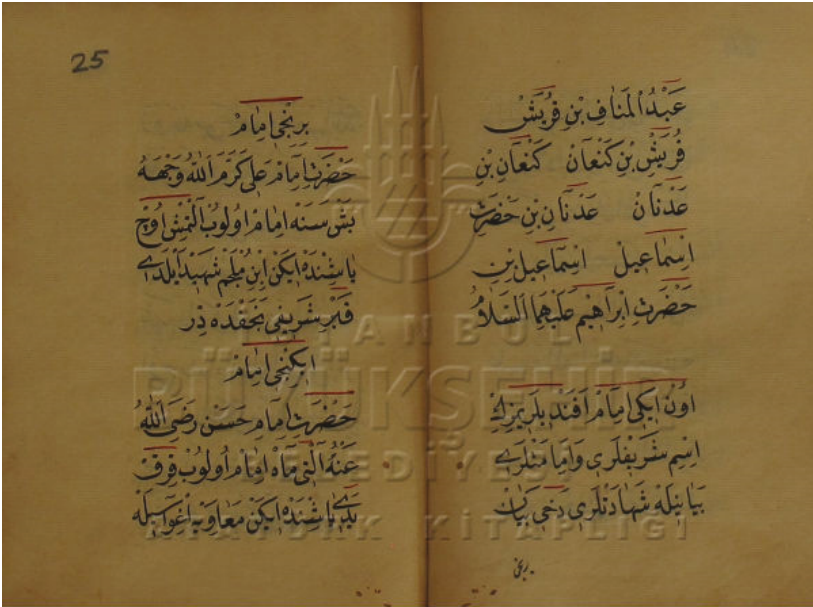 عَبْدُ الْمَنَافِ بْنِ قُرَيْشْ
قُرَيْشِ بْنِ كَنْعَانْ كَنْعَانِ بْنِ
عَدْنَانْ عَدْنَانِ بْنِ حَضْرَتِ
اِسْمَاعِيلْ اِسْمَاعِيلَ بْنِ
حَضْرَتِ اِبْرَاهِيمَ عَلَيْهِمَا السَّلَامُ
اوُنْ اِيكِى اِمَامْ اَفَنْدِيلَرِيزِكْ
اِسْمِ شَرِيفْلَرِى وَامَامَتْلَرِى
بَيَانِيلَهْ شَهَادَتْلَرِى دَخِى بَيَانْ
25
بِرِنْجِى اِمَامْ
حَضْرَتِ اِمَامْ عَلِى كَرَّمَ اللّٰهُ وَجْهَهُ
بَشْ سَنَهْ اِمَامْ اوُلُوبْ اَلْتْمِشْ اوُچْ
يَاشِنْدَهْ اِيكَنْ اِبْنِ مُلْجَمْ شَهِيدْ اَيْلَدِى
قَبْرِ شَرِيفِى نَجَفْدَهْ دِرْ
اِيكِنْجِى اِمَامْ
حَضْرَتِ اِمَامِ حَسَنْ رَضِىَ اللّٰهُ
عَنْهُ اَلْتِى مَاهْ اِمَامْ اوُلُوبْ قِرْقْ
يَدِى يَاشِنْدَهْ اِيكَنْ مَعَاوِيَهْ اِغْوَاسِيلَهْ
İSTANBUL
BÜYÜKŞEHİR
BELEDİYESİ
ATATÜRK KİTAPLIĞI